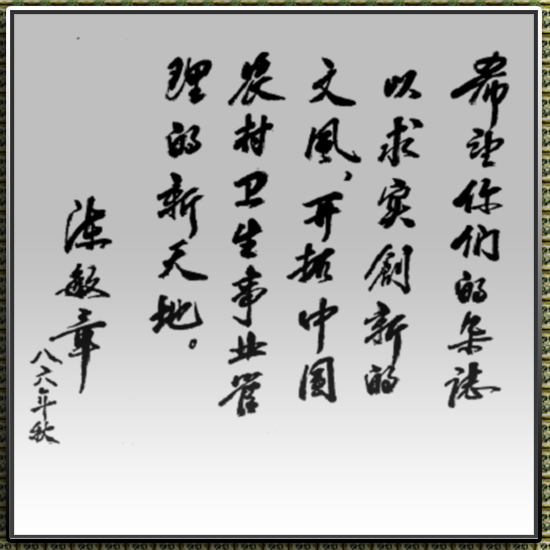 希望你们的杂誌
以求实創新的
文風，开拓中国
农村卫生事业管
理的新天地。
陈敏章
八六年秋